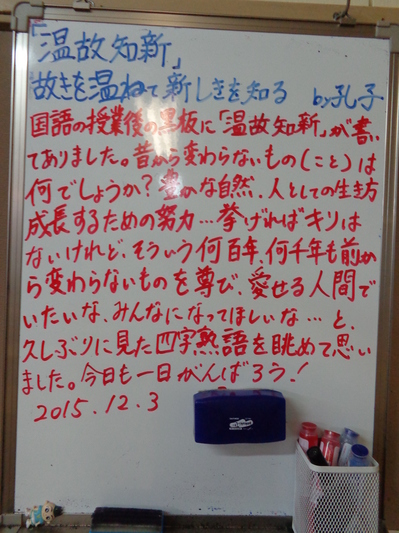 「温故知新」
故きを温ねて新しきを知る by孔子
国語の授業後の黒板に「温故知新」が書い
てありました。昔から変わらないもの(こと)は
何でしょうか?豊かな自然、人としての生き方
成長するための努力…挙げればキリは
ないけれど、そういう何百年、何千年も前か
ら変わらないものを尊び、愛せる人間で
いたいな、みんなになってほしいな…と、
久しぶりに見た四字熟語を眺めて思い
ました。今日も一日がんばろう!
2015.12.3